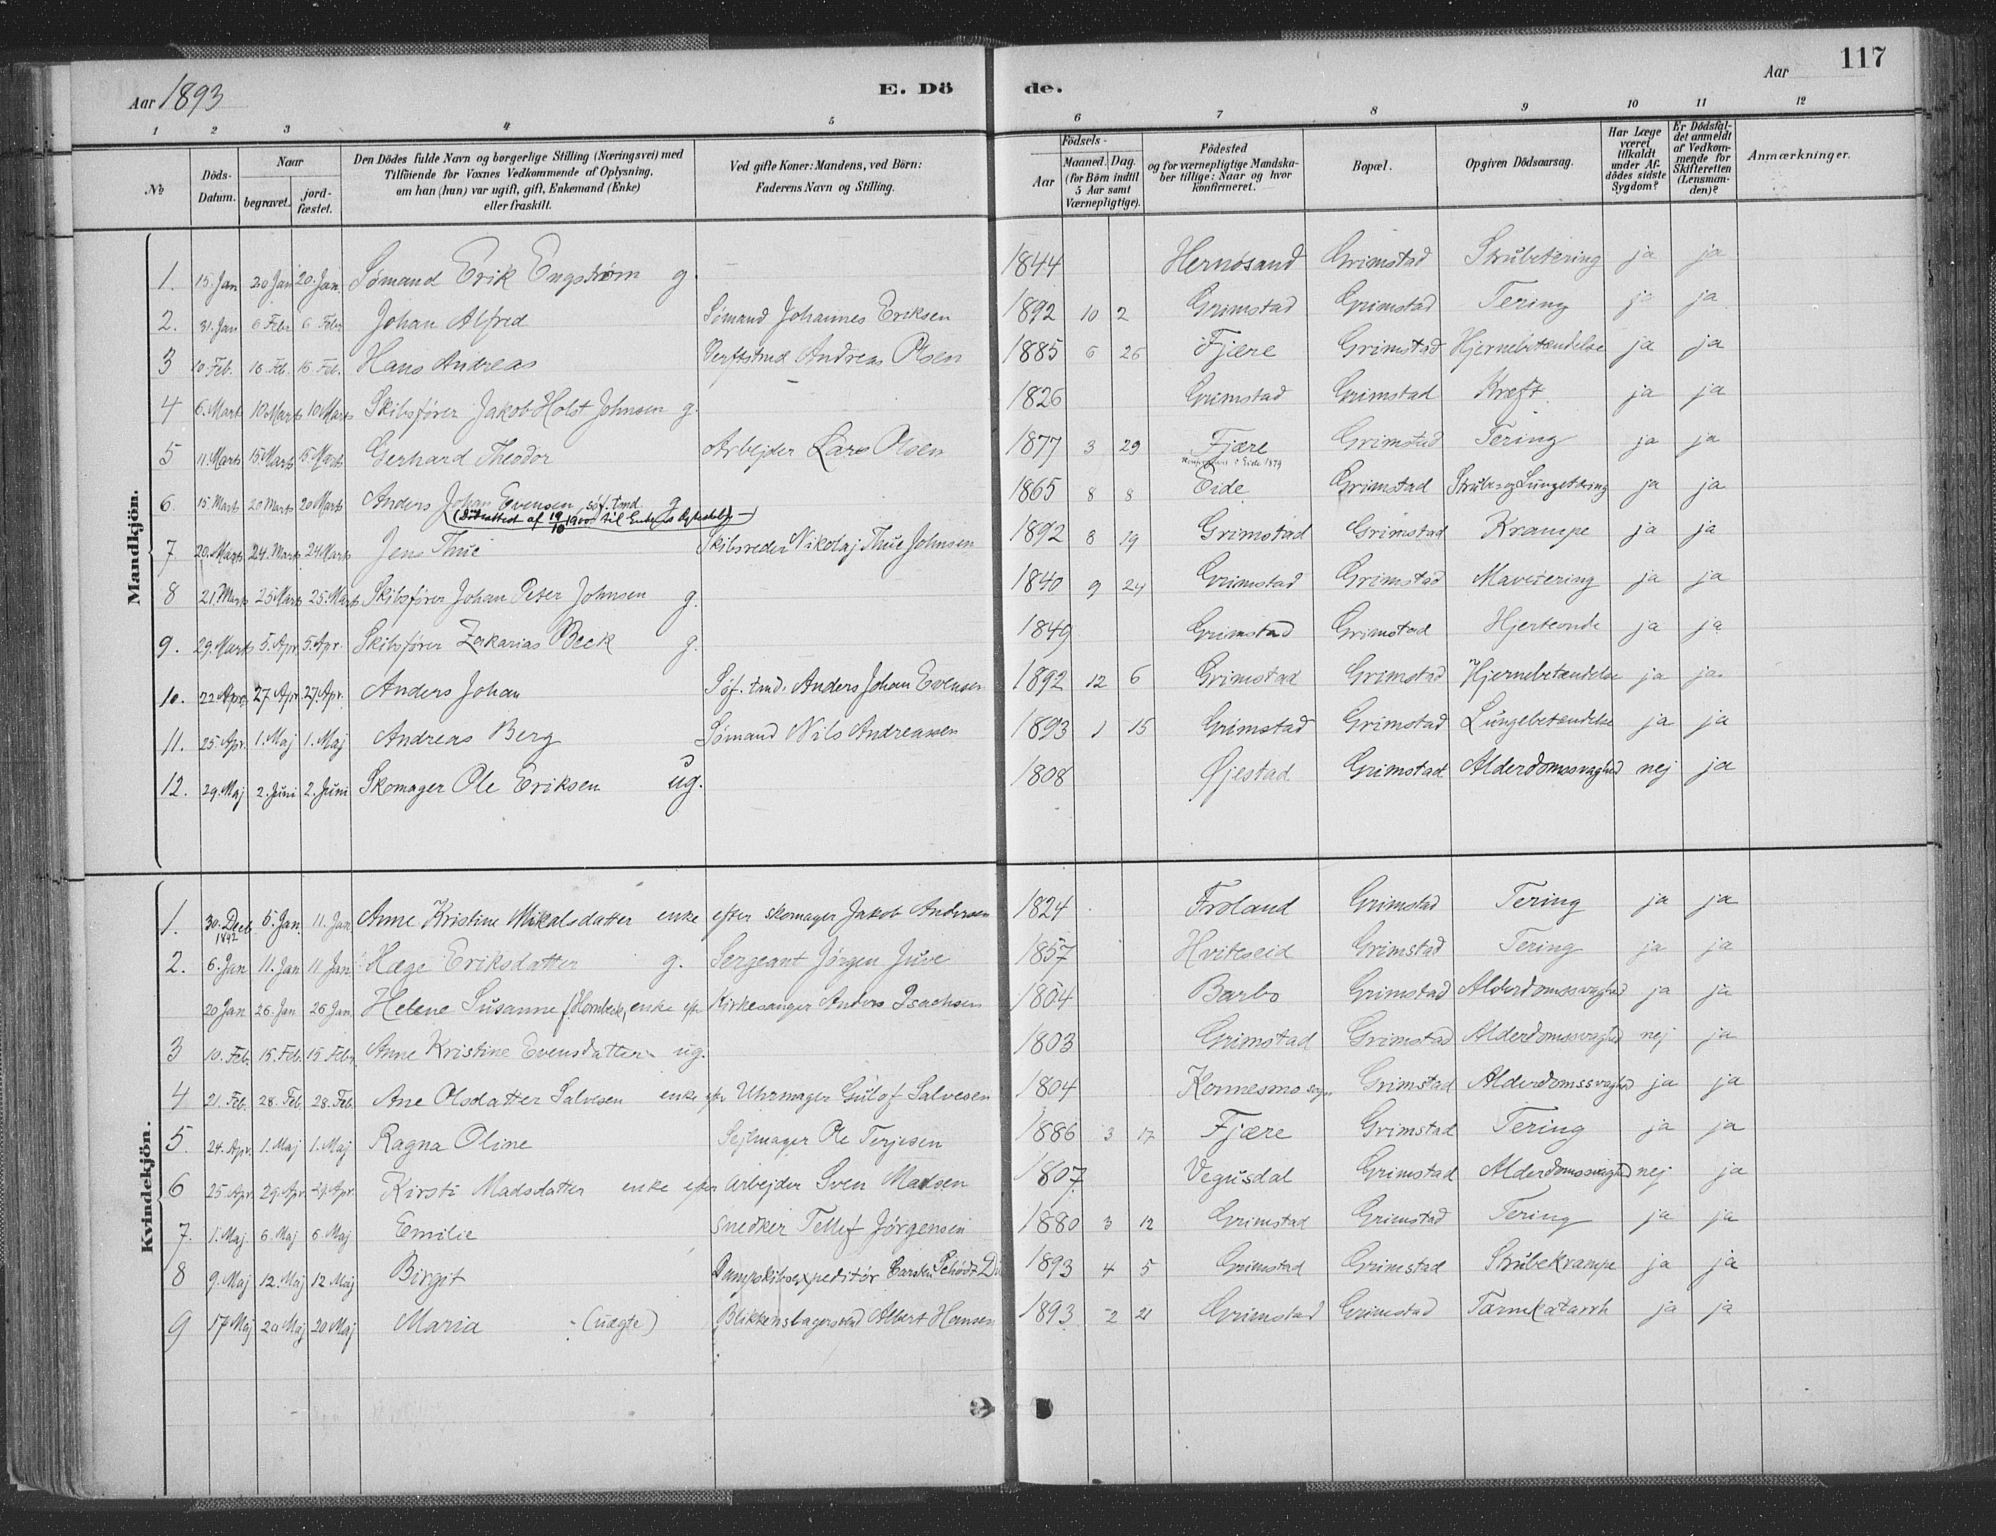 Aar 1893 E. Dö de. Aar 117
1 2 3 4 5 6 7 8 9 10 11 12
No
Döds-Datum.
Naar
begravet.
jord-fæstet.
Den Dödes fulde Navn og borgerlige Stilling (Næringsvei) med
Tilföiende for Voxnes Vedkommende af Oplysning,
om han (hun) var ugift, gift, Enkemand (Enke)
eller fraskilt.
Ved gifte Koner: Mandens, ved Börn:
Faderens Navn og Stilling.
Födsels-
Aar
Maaned. Dag.
(for Börn indtil
5 Aar samt
Værnepligtige).
Födested
og for værnepligtige Mandska-
ber tillige: Naar og hvor
konfirmeret.
Bopæl.
Opgiven Dödsaarsag.
Har Læge
været
tilkaldt
under Af-
dödes sidste
Sygdom?
Er Dödsfal-
det anmeldt
af Vedkom-
mende for
Skifteretten
(Lensman-
den)?
Anmærkninger.
Mandkjön.
1. 15. Jan 20 Jan 20. Jan. Sømand Erik Engstrøm g. 1844 Hernøsand Grimstad Strubetering ja ja
2. 31. Jan 6 Febr 6 Febr Johan Alfred Sømand Johannes Eriksen 1892 10 2 Grimstad Grimstad Tering ja ja
3 10 Feb. 16 Feb. 16 Feb. Hans Andreas Verftstmd Andreas Olsen 1885 6 26 Fjære Grimstad Hjernebetændelse ja ja
4 6. Marts 10 Marts 10 Marts Skibsfører Jakob Holst Johnsen g. 1826 Grimstad Grimstad Kræft. ja ja
5 11. Marts 15 Marts 15. Marts Gerhard Theodor Arbejder Lars Olsen 1877 3 29 Fjære Grimstad Tering ja ja
6. 15 Marts 20 Marts 20 Marts Anders Johan Evensen, søf. tmd. g. 1865 8 8 Eide Grimstad Strube og Lungetæring ja ja
7 20. Marts 24. Marts 24 Marts Jens Thue Skibsreder Nikolaj Thue Johnsen 1892 8 19 Grimstad Grimstad Krampe ja ja
8 21. Marts 25 Marts 25. Marts Skibsfører Johan Peter Johnsen g. 1840 9 24 Grimstad Grimstad Mavetering ja ja
9. 29. Marts 5. Apr 5. Apr. Skibsfører Zakarias Beck g. 1849 Grimstad Grimstad Hjerteonde ja ja
10. 22 Apr. 27. Apr. 27. Apr. Anders Johan Søf. tmd. Anders Johan Evensen 1892 12 6 Grimstad Grimstad Hjernebetændelse ja ja.
11. 25 Apr. 1. Maj 1. Maj Andreas Berg Sømand Nils Andreassen 1893 1 15 Grimstad Grimstad Lungebetændelse ja ja
12. 29. Maj 2. Juni 2. Juni Skomager Ole Eriksen ug. 1808 Øjestad Grimstad Alderdomssvaghed nej ja
Kvindekjön.
1. 30. Decb 1892 5. Jan. 11. Jan Anne Kristine Mikalsdatter enke efter skomager Jakob Andersen 1824 Froland Grimstad Tering ja ja
2. 6. Jan 11. Jan 11 Jan Hæge Eriksdatter g. Sergeant Jørgen Juve 1857 Hviteseid Grimstad Tering ja ja
20 Jan 26. Jan 26 Jan. Helene Susanne f. Hornbech, enke eftr Kirkesanger Anders Isachsen 1804 Barbo Grimstad Alderdomssvaghed ja ja
3 10. Feb. 15. Feb. 15 Febr. Anne Kristine Evensdatter ug. 1803 Grimstad Grimstad Alderdomssvaghed nej ja
4 21. Feb. 28. Feb 28. Feb Ane Olsdatter Salvesen enke eftr Uhrmager Gulof Salvesen 1804 Konnesmo sogn Grimstad Alderdomssvaghed ja ja
5. 24. Apr. 1. Maj 1. Maj Ragna Oline Sejlmager Ole Terjesen 1886 3 17 Fjære Grimstad Tering ja ja
6 25. Apr. 29. Apr. 29. Apr. Kirsti Madsdatter enke efter Arbejder Sven Madsen 1807 Vegusdal Grimstad Alderdomssvaghed nej ja
7. 1. Maj 6. Maj 6 Maj Emilie Snedker Tellef Jørgensen 1880 3 12 Grimstad Grimstad Tering ja ja
8 9. Maj 12. Maj 12 Maj Birgit Dampskibsexpeditør Carsten 1893 4 5 Grimstad Grimstad Strubekrampe ja ja
9 17 Maj 20 Maj 20 Maj Maria (uægte) Blikkenslagersvend Albert Hansen 1893 2 21 Grimstad Grimstad Tarmkatarrh ja ja